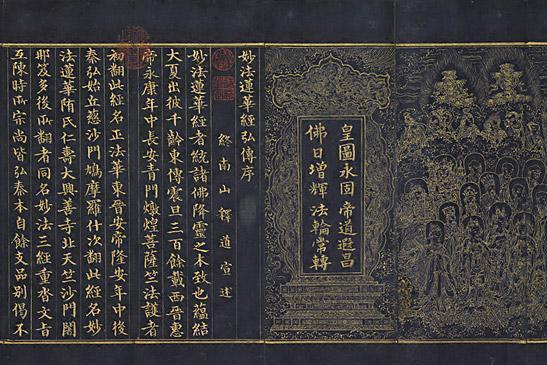 皇圖永固帝道遐昌
佛日增輝法輪常轉
妙法蓮華經弘傳序
終南山釋道宣述
妙法蓮華經者統諸佛降靈之本致也蘊結
大夏出彼千齡東傳震旦三百餘載西晉惠
帝永康年中長安青門燉煌菩薩竺法護者
初翻此經名正法華東晉安帝隆安年中後
秦弘始丘慈沙門鳩摩羅什次翻此經名妙
法蓮華隋氏仁壽大興善寺北天竺沙門闍
那笈多後所翻者同名妙法三經重沓文旨
互陳時所宗尚皆弘秦本自餘支品別偈不